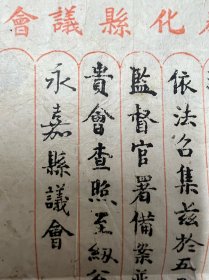 化縣議會
依法召集茲於五
監督官署備案
貴會查照至紉
永嘉縣議會